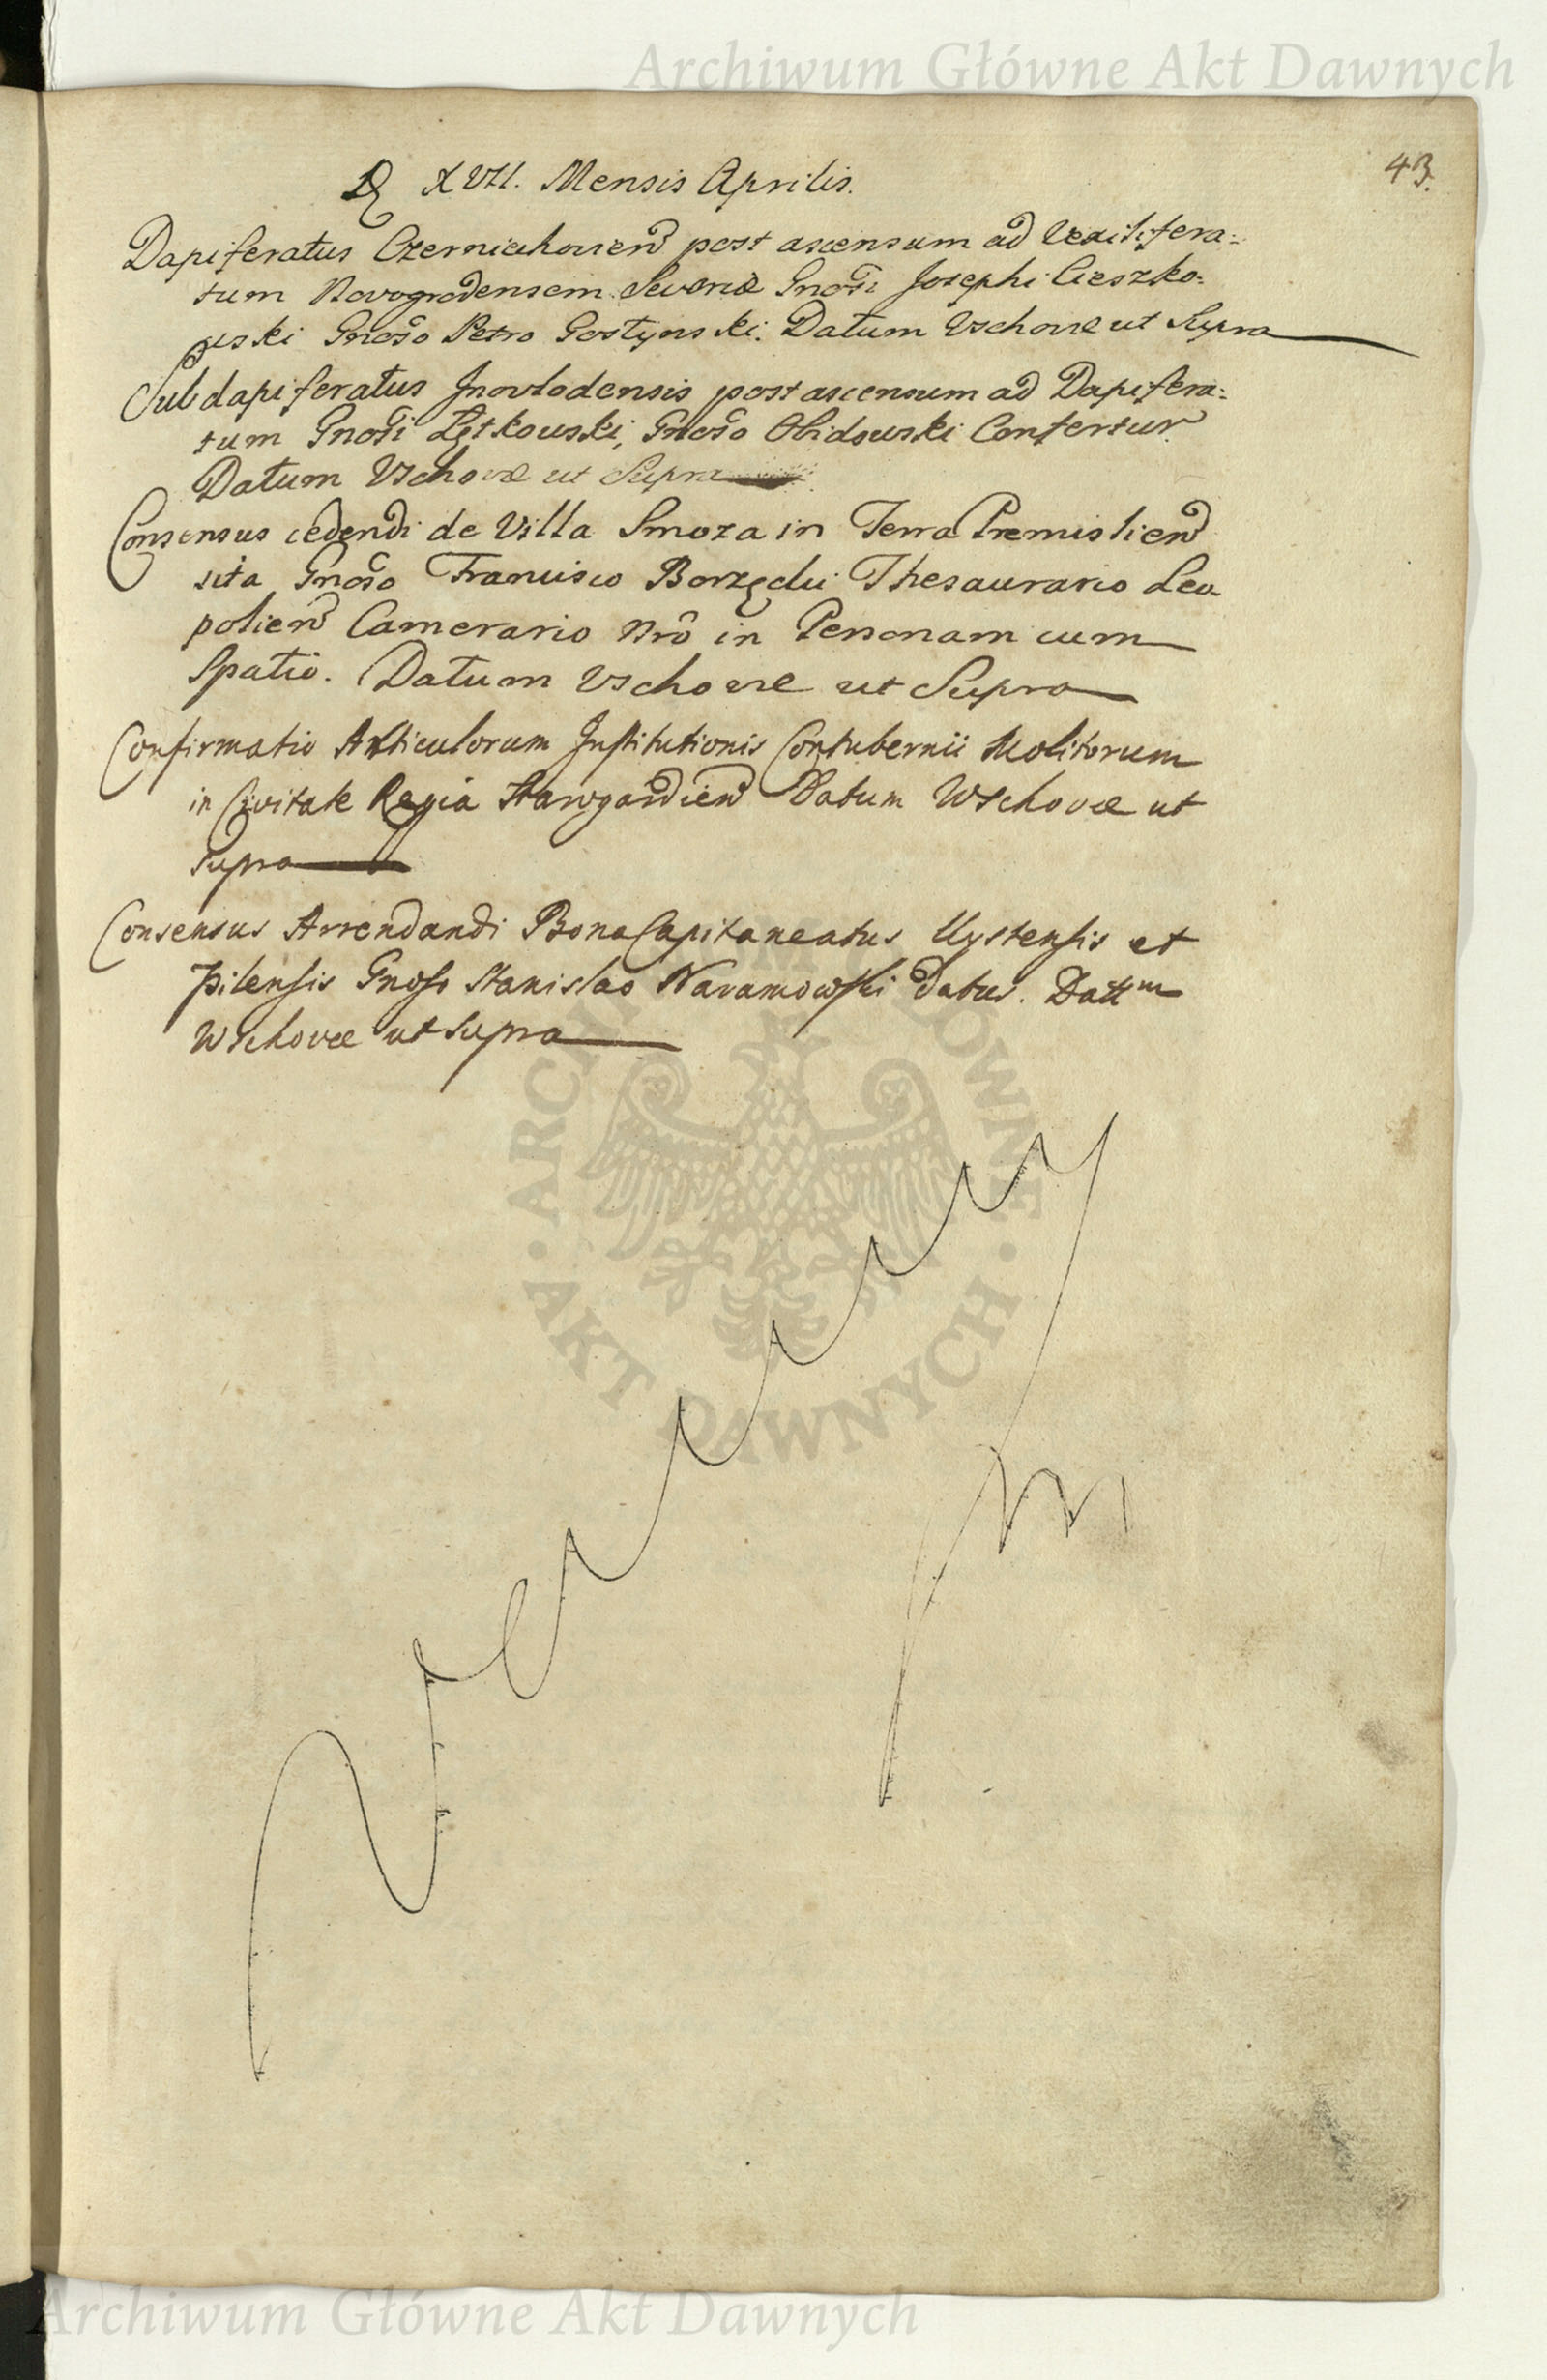 Archiwum Główne Akt Dawnych
43.
D XVII. Mensis Aprilis.
Dapiferatus Czerniechovien post ascensum ad Vexilifera:
tum Novogrodensem Severiæ Gnosi Josephi Cieszko:
wski Gnoso Petro Gostynski. Datum Vschovæ ut Supra
Subdapiferatus Inovlodensis post ascensum ad Dapifera:
tum Gnosi Lętkowski, Gnoso Obidowski Confertur
Datum Vschovæ ut Supra
Consensus cedendi de Villa Smoza in Terra Premislien
sita Gnoso Francisco Borzęcki Thesaurario Leo
polien Camerario Nro in Personam cum
Spatio. Datum Vschovæ ut Supra
Confirmatio Articulorum Institutionis Contubernii Molitorum
in Civitate Regia Starogardien Datum Wschovæ ut
supra
Consensus Arrendandi Bona Capitaneatus Uystensis et
Pilensis Gnoso Stanislao Naramowski datus. Dattm
Wschovæ ut supra
ARCHIWUM GŁÓWNE · AKT DAWNYCH ·
Archiwum Główne Akt Dawnych